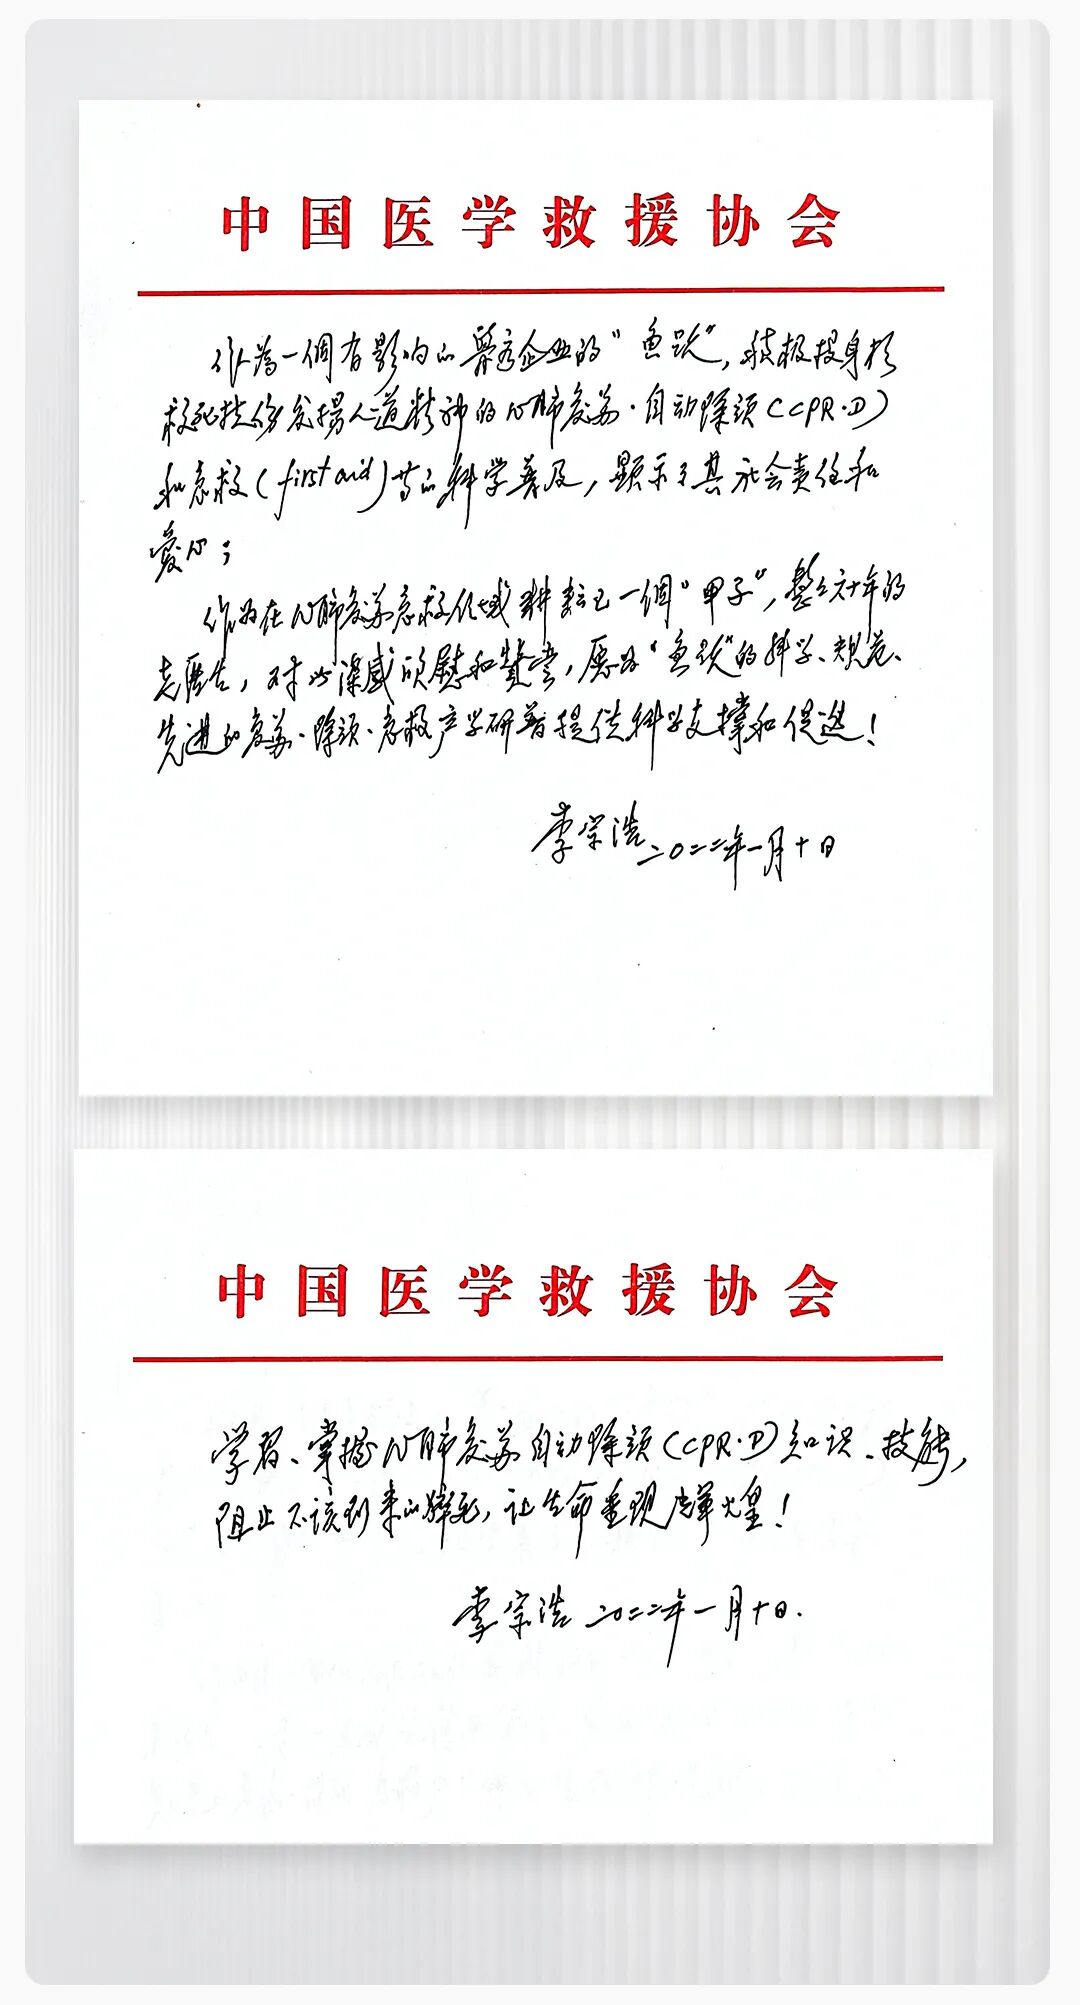 中国医学救援协会
作为一個有影响的器械企业的“鱼跃”,积极投身於
救死扶伤发揚人道精神的心肺复苏·自动除颤(CPR·D)
和急救(first aid)等的科学普及,顯示了其社会责任和
爱心;
作为在心肺复苏急救领域耕耘已一個“甲子”,整整六十年的
老医生,对此深感欣慰和赞赏,愿为“鱼跃”的科学、规范、
先进的复苏·除颤·急救产学研普提供科学支撑和促进!
李宗浩 二〇二二年一月十日
中国医学救援协会
学習、掌握心肺复苏自动除颤(CPR·D)知识、技能,
阻止不该到来的猝死,让生命重现辉煌!
李宗浩 二〇二二年一月十日.